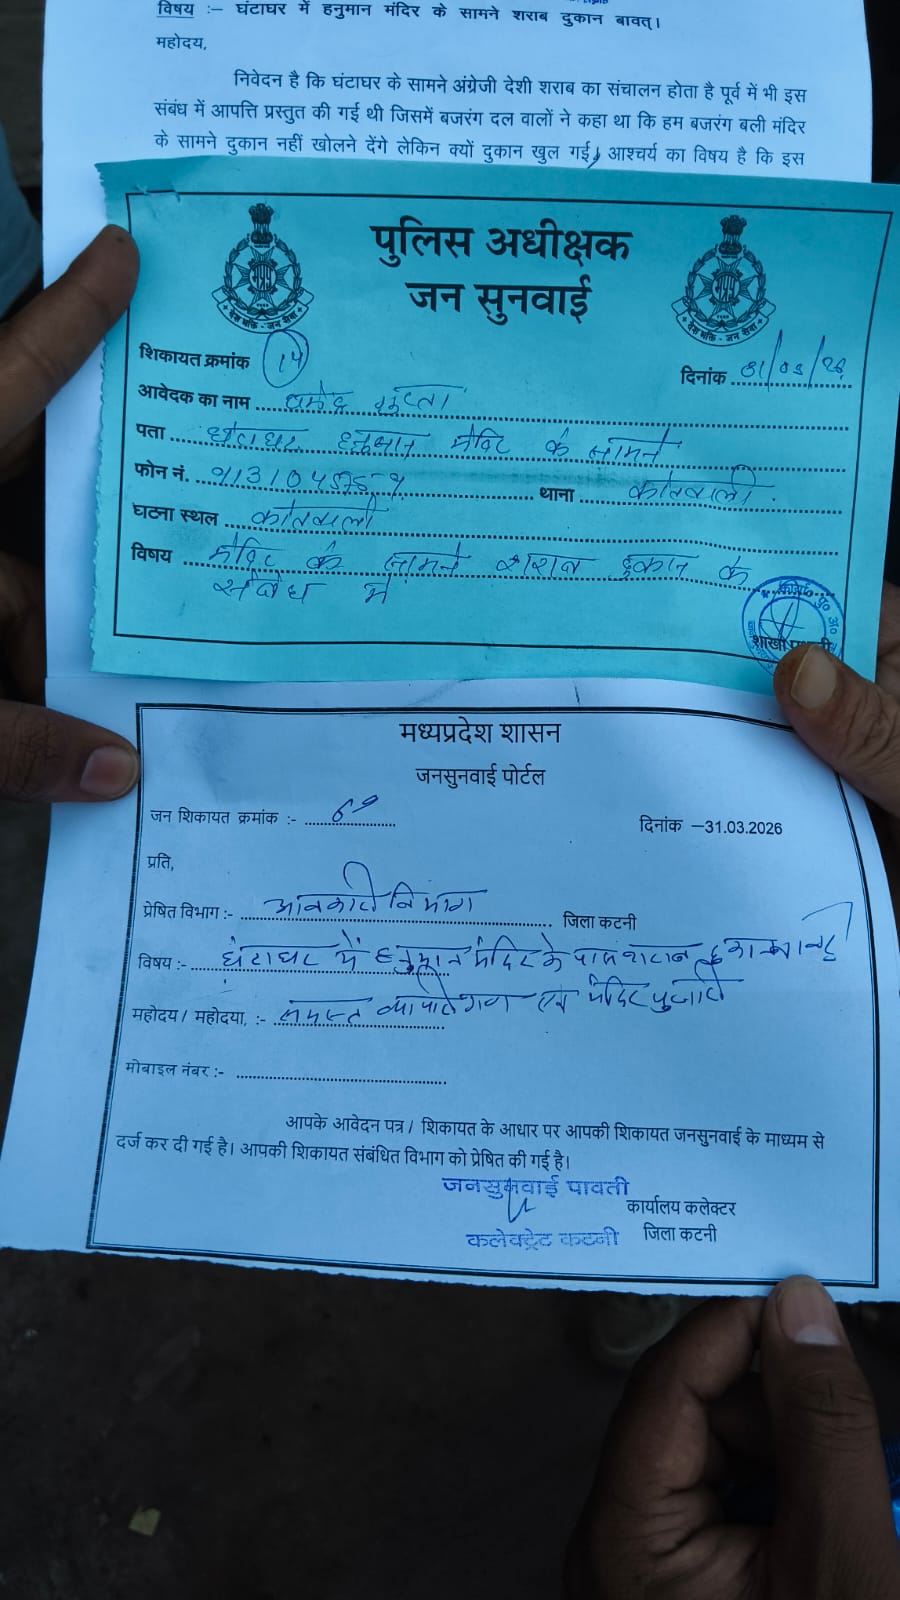 विषय :– घंटाघर में हनुमान मंदिर के सामने शराब दुकान बावत्।
महोदय,
निवेदन है कि घंटाघर के सामने अंग्रेजी देशी शराब का संचालन होता है पूर्व में भी इस
संबंध में आपत्ति प्रस्तुत की गई थी जिसमें बजरंग दल वालों ने कहा था कि हम बजरंग बली मंदिर
के सामने दुकान नहीं खोलने देंगे लेकिन क्यों दुकान खुल गई, आश्चर्य का विषय है कि इस
पुलिस अधीक्षक
जन सुनवाई
देश भक्ति - जन सेवा
देश भक्ति - जन सेवा
शिकायत क्रमांक
दिनांक 31/03/26
आवेदक का नाम धर्मेंद्र गुप्ता
पता घंटाघर हनुमान मंदिर के सामने
फोन नं. थाना कोतवाली
घटना स्थल कोतवाली
विषय मंदिर के सामने शराब दुकान के
संबंध में
मध्यप्रदेश शासन
जनसुनवाई पोर्टल
जन शिकायत क्रमांक :-
दिनांक –31.03.2026
प्रति,
प्रेषित विभाग :- आबकारी विभाग जिला कटनी
विषय :- घंटाघर में हनुमान मंदिर के पास शराब दुकान
महोदय / महोदया, :- समस्त व्यापारीगण एवं मंदिर पुजारी
मोबाइल नंबर :-
आपके आवेदन पत्र / शिकायत के आधार पर आपकी शिकायत जनसुनवाई के माध्यम से
दर्ज कर दी गई है। आपकी शिकायत संबंधित विभाग को प्रेषित की गई है।
जनसुनवाई पावती
कार्यालय कलेक्टर
कलेक्ट्रेट कटनी
जिला कटनी